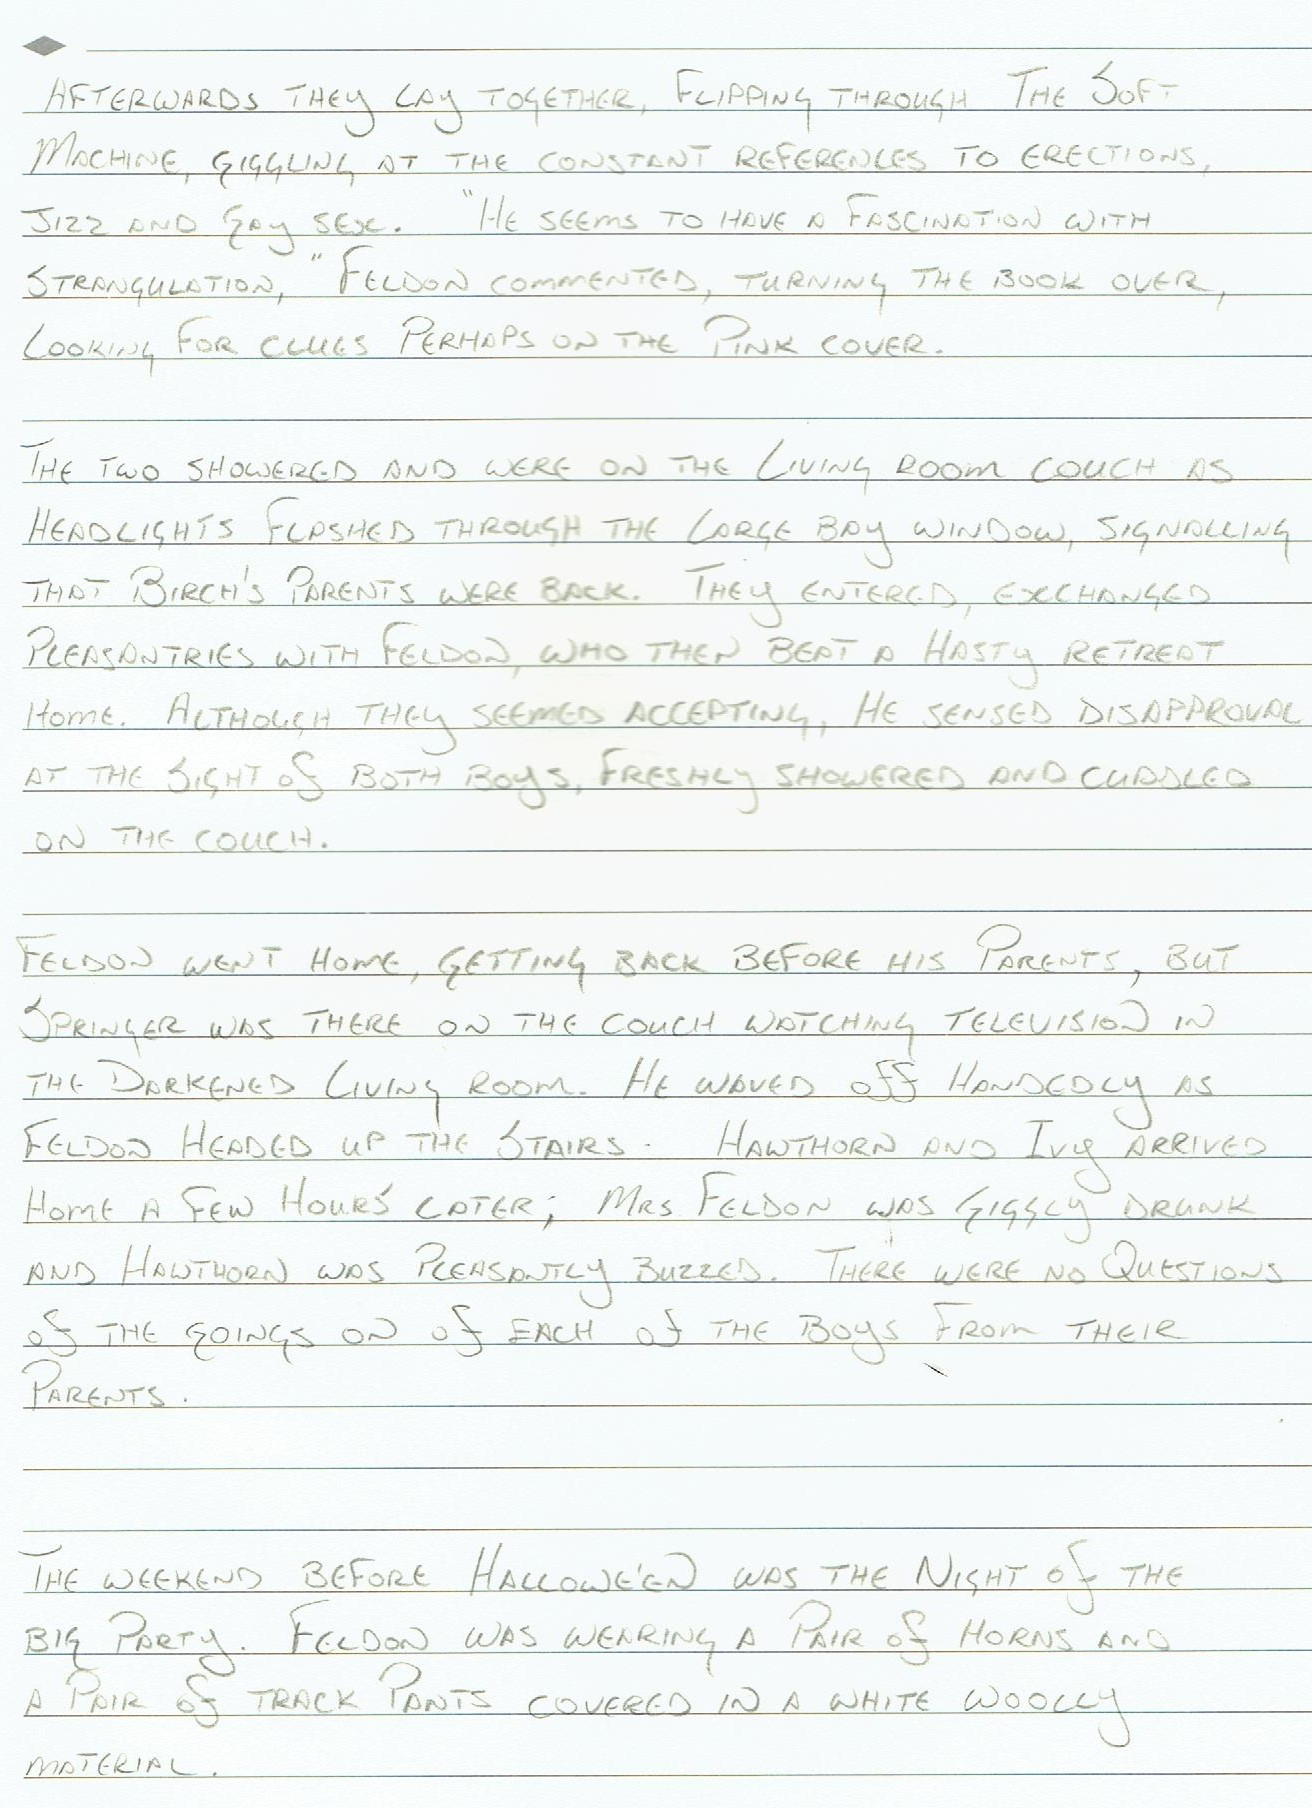 Afterwards they lay together, flipping through The Soft
Machine, giggling at the constant references to erections,
jizz and gay sex. "He seems to have a fascination with
strangulation," Feldon commented, turning the book over,
looking for clues perhaps on the pink cover.
The two showered and were on the living room couch as
headlights flashed through the large bay window, signalling
that Birch's parents were back. They entered, exchanged
pleasantries with Feldon, who then beat a hasty retreat
home. Although they seemed accepting, he sensed disapproval
at the sight of both boys, freshly showered and cuddled
on the couch.
Feldon went home, getting back before his parents, but
Springer was there on the couch watching television in
the darkened living room. He waved off handedly as
Feldon headed up the stairs. Hawthorn and Ivy arrived
home a few hours later; Mrs Feldon was giggly drunk
and Hawthorn was pleasantly buzzed. There were no questions
of the goings on of each of the boys from their
parents.
The weekend before Hallowe'en was the night of the
big party. Feldon was wearing a pair of horns and
a pair of track pants covered in a white woolly
material.